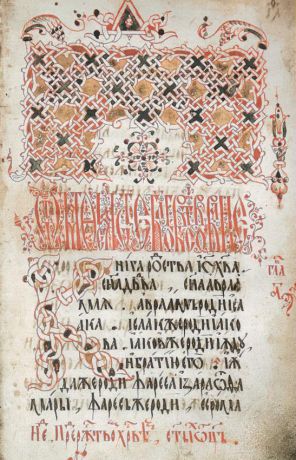 гла
а
нига роства іу хва
сна двда . сна авраа
мля . авраамъ роди иса
ака . исаакже роди іако
ва . іаковже роди іюду
и братію его . ію
даже роди фареса и зара ѿ фа
мары . фаресже роди есрома
не пре ржтво хвѣ, сты оць